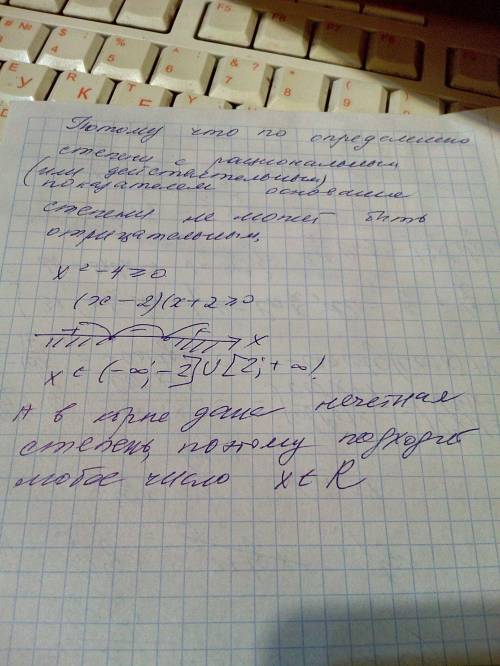 Потому что по определению
степени с рациональным
(или действительным)
показателем основание
степени не может быть
отрицательным,
x² - 4 ≥ 0
(x - 2)(x + 2 ≥ 0
+ - + x
x ∈ (-∞; -2] ∪ [2; +∞)
А в корне дана нечетная
степень, поэтому подходит
любое число x ∈ R